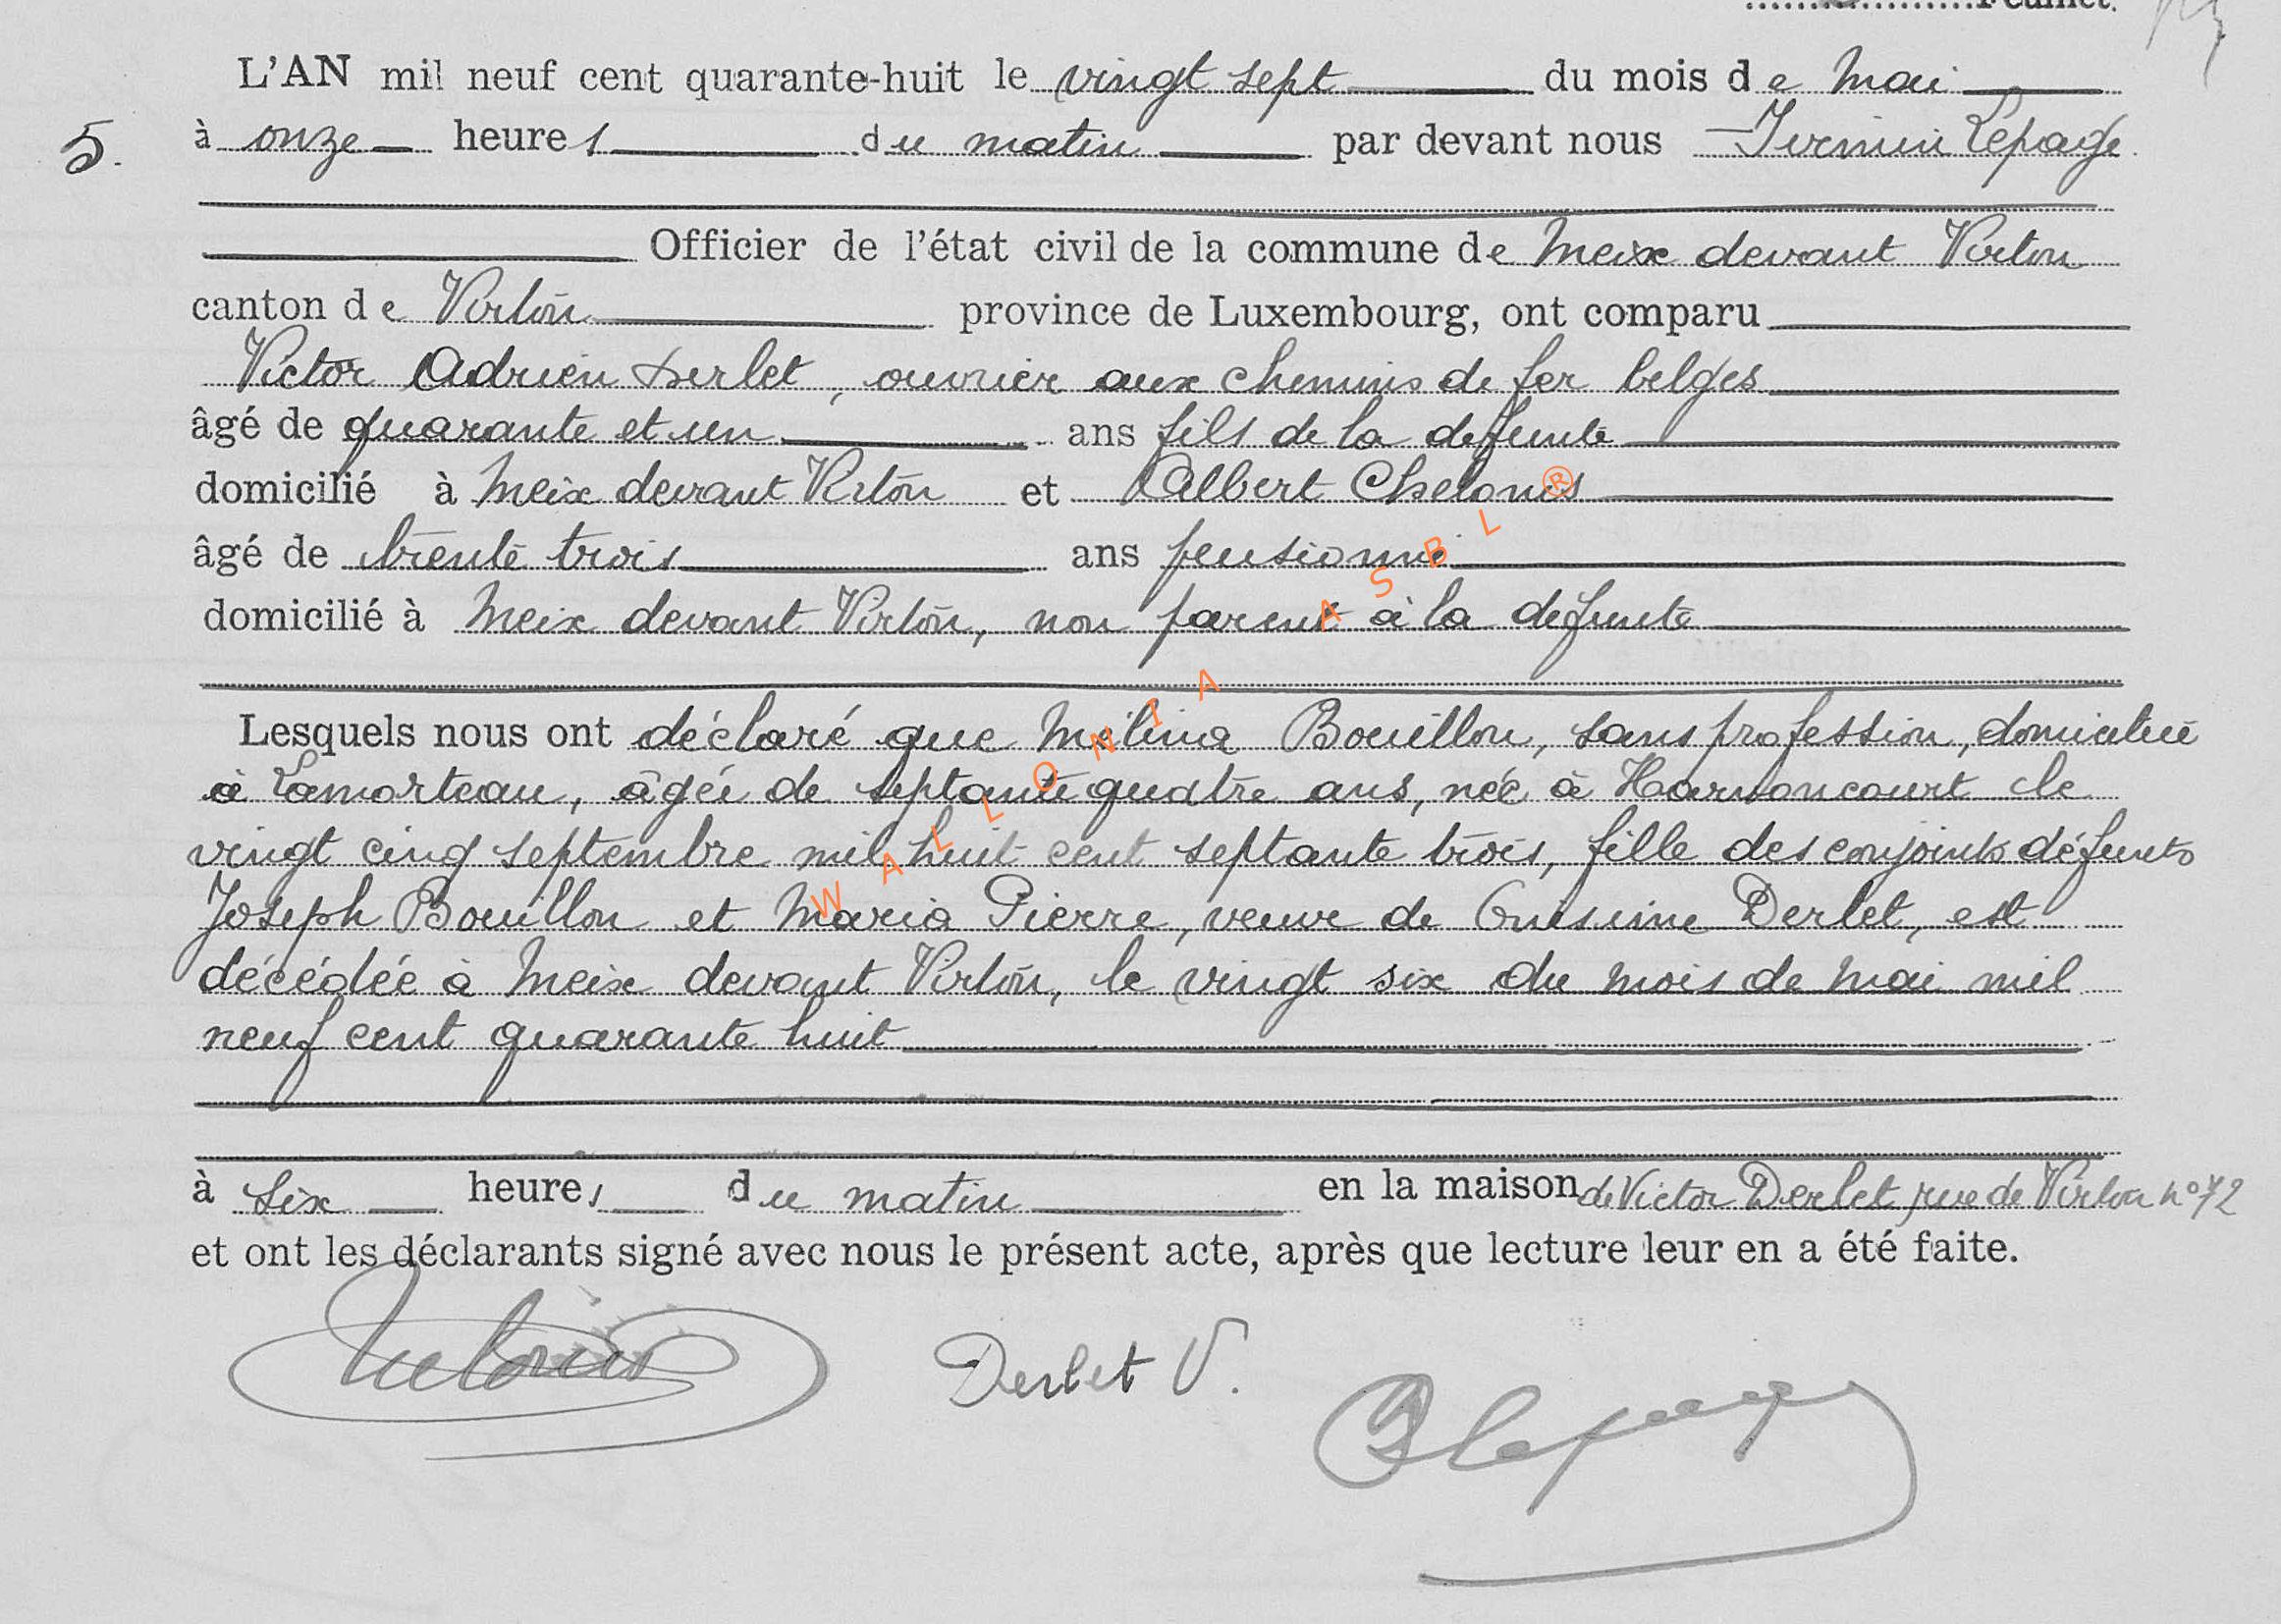 Feuillet.
L'AN mil neuf cent quarante-huit le vingt sept du mois de Mai
5. à onze heures du matin par devant nous Lepage
Officier de l'état civil de la commune de Meix devant Virton
canton de Virton province de Luxembourg, ont comparu
Victor Adrien Derlet, ouvrier aux chemins de fer belges
âgé de quarante et un ans fils de la défunte
domicilié à Meix devant Virton et Albert
âgé de trente trois ans pensionné
domicilié à Meix devant Virton, non parent à la défunte
Lesquels nous ont déclaré que Mélina Bouillon, sans profession, domiciliée
à Lamorteau, âgée de septante quatre ans, née à Harnoncourt le
vingt cinq septembre mil huit cent septante trois, fille des conjoints défunts
Joseph Bouillon et Maria Pierre, veuve de Derlet, est
décédée à Meix devant Virton, le vingt six du mois de Mai mil
neuf cent quarante huit
à six heures du matin en la maison de Victor Derlet rue de Virton n° 72
et ont les déclarants signé avec nous le présent acte, après que lecture leur en a été faite.
Derlet V.
WALLONIA ASBL ®